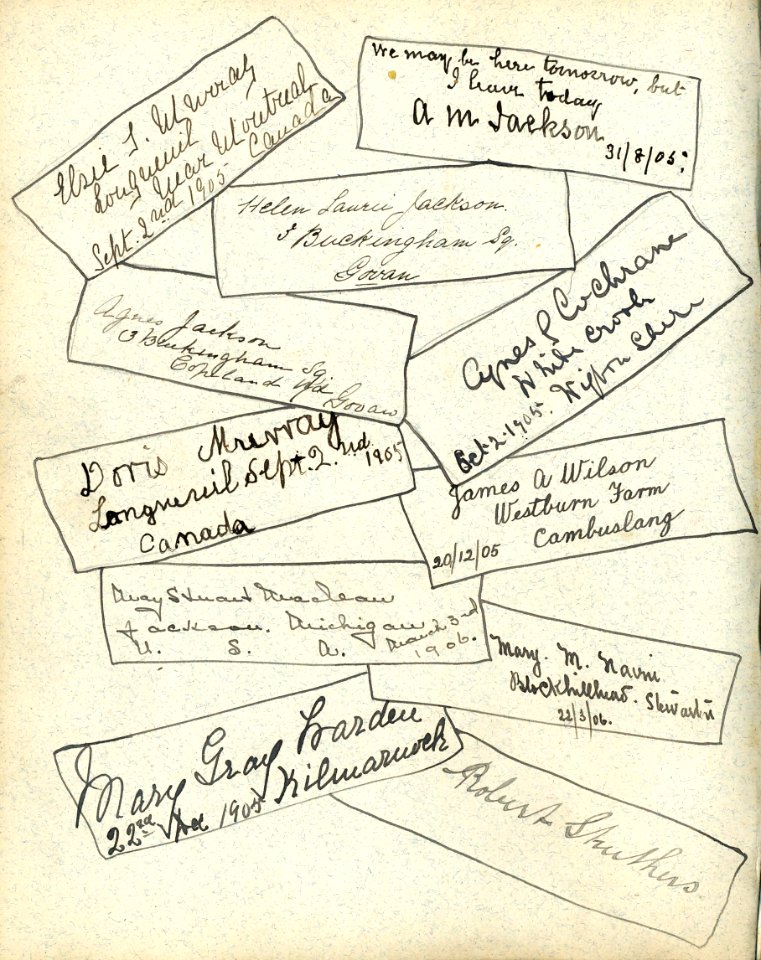 Elsie I. Murray
Longueuil
Near Montreal
Sept. 2nd 1905 Canada
We may be here tomorrow, but
I leave today
A M Jackson
31/8/05.
Helen Laurie Jackson.
3 Buckingham Sq.
Govan
Agnes Jackson
3 Buckingham Sq.
Copeland Rd
Govan
Agnes P Cochrane
White Crook
Oct. 2. 1905. Wigton Shire
Doris Murray
Longueuil Sept. 2.nd 1905
Canada
James A Wilson
Westburn Farm
20/12/05 Cambuslang
May Stuart Maclean
Jackson. Michigan
U. S. A. March 23rd
1906.
Mary. M. Nairn
Blockhillhead. Stewarton
22/3/06.
Mary Gray
22nd 1905 Kilmarnock
Robert Struthers